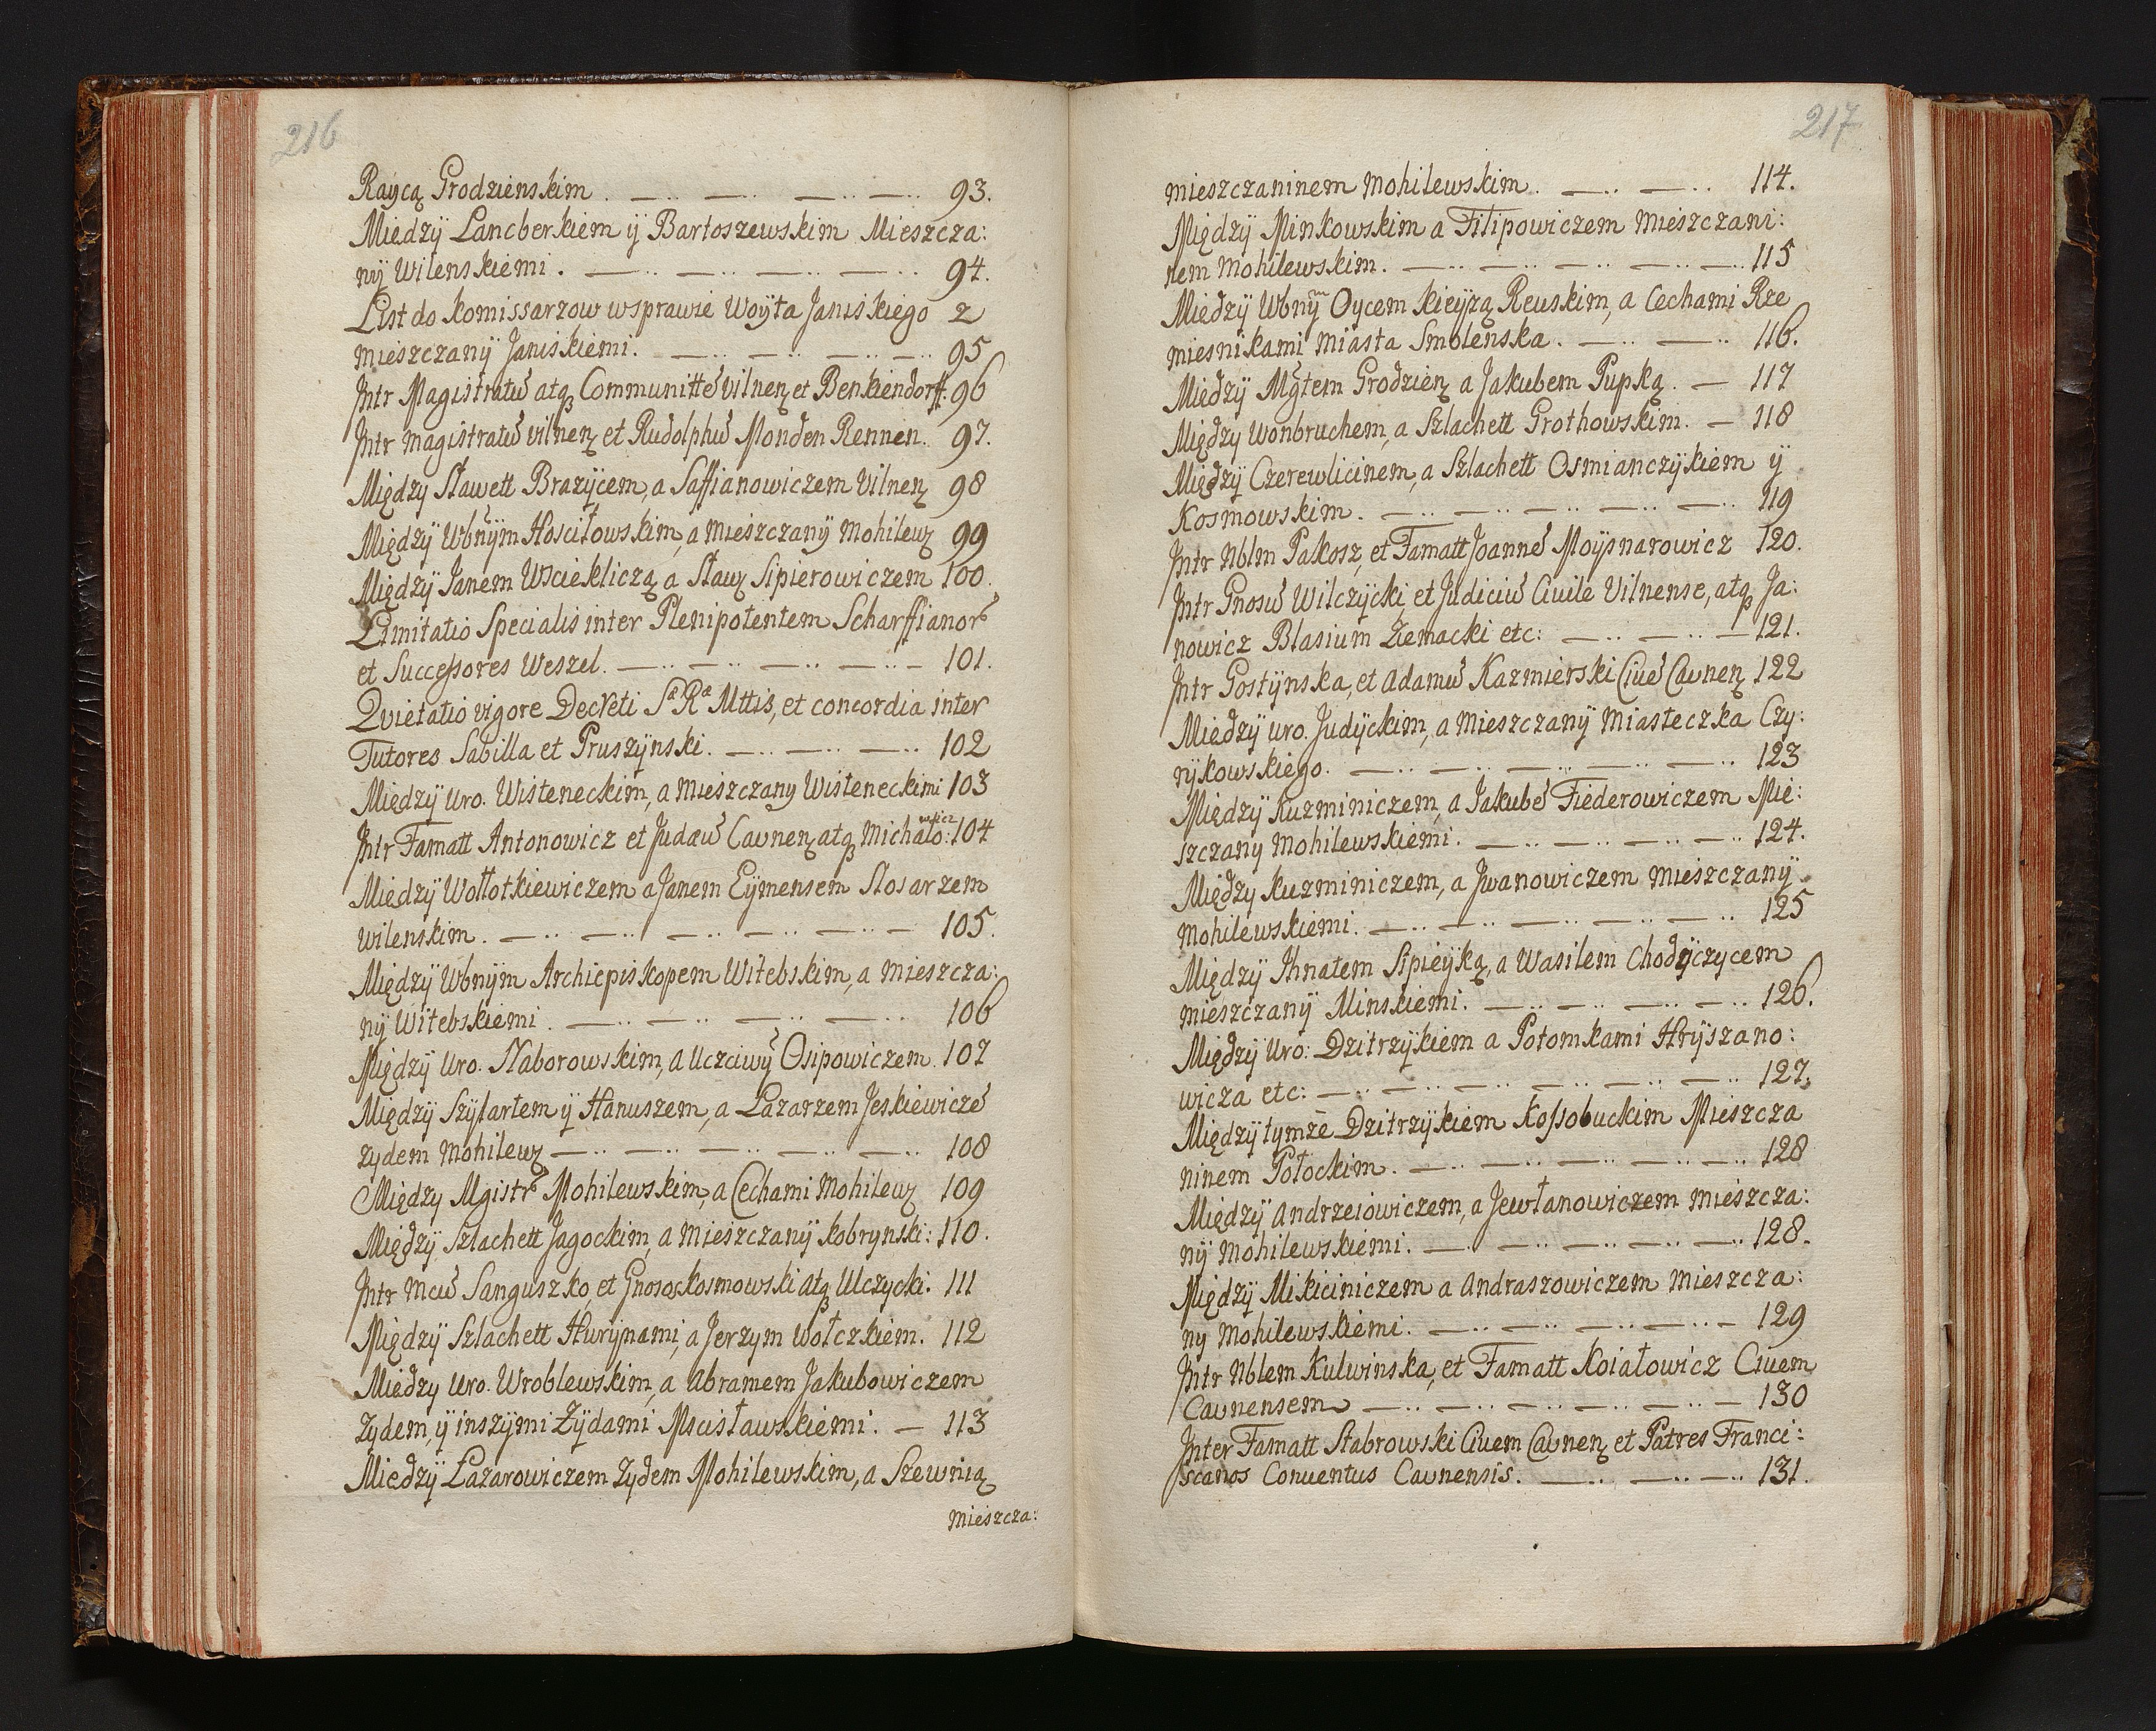 216
Raycą Grodzienskim. — .. — .. — .. — .. 93.
Miedzÿ Lancberkiem ÿ Bartoszewskim Mieszcza:
nÿ Wilenskiemi. — .. — .. — .. — .. 94.
List do Komissarzow wsprawie Woÿta Janiskiego z
mieszczanÿ Janiskiemi. — .. — .. — .. — .. 95
Intr Magistratū atqꝫ Communittē vilneꝫ et Benkiendorff. 96
Intr magistratū vilneꝫ et Rudolphū Monden Rennen. 97.
Między Sławett Brazÿcem, a Saffianowiczem Vilneꝫ 98
Międzÿ Wbnÿm Hosciłowskim, a mieszczanÿ Mohilewꝫ 99
Międzÿ Janem Wsciekliczą, a Sławꝫ Sipierowiczem 100.
Limitatio Specialis inter Plenipotentem Scharffianor
et Successores Weszel. — .. — .. — .. — .. — 101.
Qvietatio vigore Decreti Sᵃ Rᵃ Mttis, et concordia inter
Tutores Sabilla et Pruszÿnski. — .. — .. — .. 102
Międzÿ Uro. Wisteneckim, a mieszczany Wisteneckimi 103
Intr Famatt Antonowicz et Judæū Cauneꝫ atqꝫ Michało:wicz 104
Międzÿ Wołłotkiewiczem a Janem Eÿmensem Slosarzem
Wilenskim. — .. — .. — .. — .. — .. — 105.
Międzÿ Wbnÿm Archiepiskopem Witebskim, a mieszcza:
nÿ Witebskiemi. — .. — .. — .. — .. 106
Międzÿ Uro. Naborowskim, a Uczciwÿ Osipowiczem. 107
Międzÿ Szÿlartem ÿ Hanuszem, a Lazarzem Jeskiewiczē
zydem Mohilewꝫ — .. — .. — .. — .. — .. 108
Między Mgistr Mohilewskim, a Cechami Mohilewꝫ 109
Międzÿ Szlachett Jagockim, a mieszczanÿ Kobrynski: 110.
Intr Mcū Sanguszko, et Gnosos Kosmowski atqꝫ Ulczycki. 111
Międzÿ Szlachett Hurÿnami, a Jerzym Wołczkiem. 112
Między Uro. Wroblewskim, a Abramem Jakubowiczem
Zydem, ÿ inszÿmi Zÿdami Mscisławskiemi. — 113
Miedzÿ Łazarowiczem Zydem Mohilewskim, a Szewnią
mieszcza:
217
mieszczaninem Mohilewskim. — .. — .. 114.
Międzÿ Minkowskim a Filipowiczem mieszczani:
nem Mohilewskim. — .. — .. — .. — .. — .. 115
Miedzÿ Wbnÿm Oycem Kieÿzą Reuskim, a Cechami Rze
miesnikami Miasta Smolenska. — .. — .. 116.
Międzÿ Mgtem Grodzieꝫ a Jakubem Pupką. — 117
Między Wonbruchem, a Szlachett Grothowskim. — 118
Międzÿ Czerewlicinem, a Szlachett Osmianczÿkiem ÿ
Kosmowskim. — .. — .. — .. — .. — .. 119
Intr Nblm Pakosz, et Famatt Joannē Moÿsnarowicz 120.
Intr Gnosū Wilczÿcki, et Judiciū Ciuile Vilnense, atqꝫ Ja:
nowicz Blasium Ziemacki etc: — .. — .. — 121.
Intr Gostÿnska, et Adamū Kazmierski Ciuē Cauneꝫ 122
Międzÿ Uro. Judÿckim, a mieszczanÿ Miasteczka Czy:
rÿkowskiego. — .. — .. — .. — .. — .. 123
Międzÿ Kuzminiczem, a Jakubē Fiederowiczem Mie:
szczany Mohilewskiemi. — .. — .. — .. — .. 124.
Między Kuzminiczem, a Jwanowiczem mieszczanÿ
Mohilewskiemi. — .. — .. — .. — .. — .. 125
Między Ihnatem Sipieÿką, a Wasilem Chodÿczycem
mieszczanÿ Minskiemi. — .. — .. — .. — .. 126.
Międzÿ Uro: Dzitrzÿkiem a Potomkami Hrÿszano:
wicza etc: — .. — .. — .. — .. — .. — .. 127.
Międzÿ tymże Dzitrzÿkiem Kossobuckim Mieszcza
ninem Połockim. — .. — .. — .. — .. — .. 128
Międzÿ Andrzeiowiczem, a Jewłanowiczem mieszcza:
nÿ Mohilewskiemi. — .. — .. — .. — .. — .. 128.
Międzÿ Mikiciniczem a Andraszowiczem mieszcza:
ny Mohilewskiemi. — .. — .. — .. — .. — 129
Intr Nblem Kulwinska, et Famatt Koiałowicz Ciuem
Caunensem — .. — .. — .. — .. — .. — 130
Inter Famatt Stabrowski Ciuem Cauneꝫ et Patres Franci:
scanos Conuentus Caunensis. — .. — .. — .. 131.